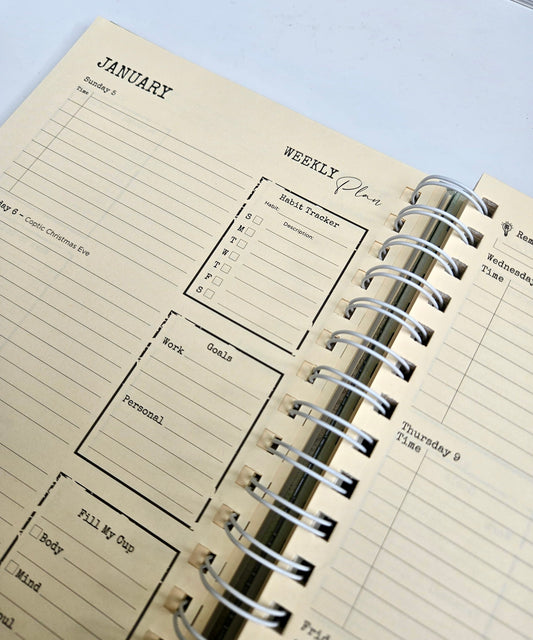 JANUARY
Sunday 5
Time
6 – Coptic Christmas Eve
WEEKLY
Plan
Habit Tracker
Habit:
Description:
S
M
T
W
T
F
S
Goals
Work
Personal
Fill My Cup
Body
Mind
Wednesday
Time
Thursday 9
Time